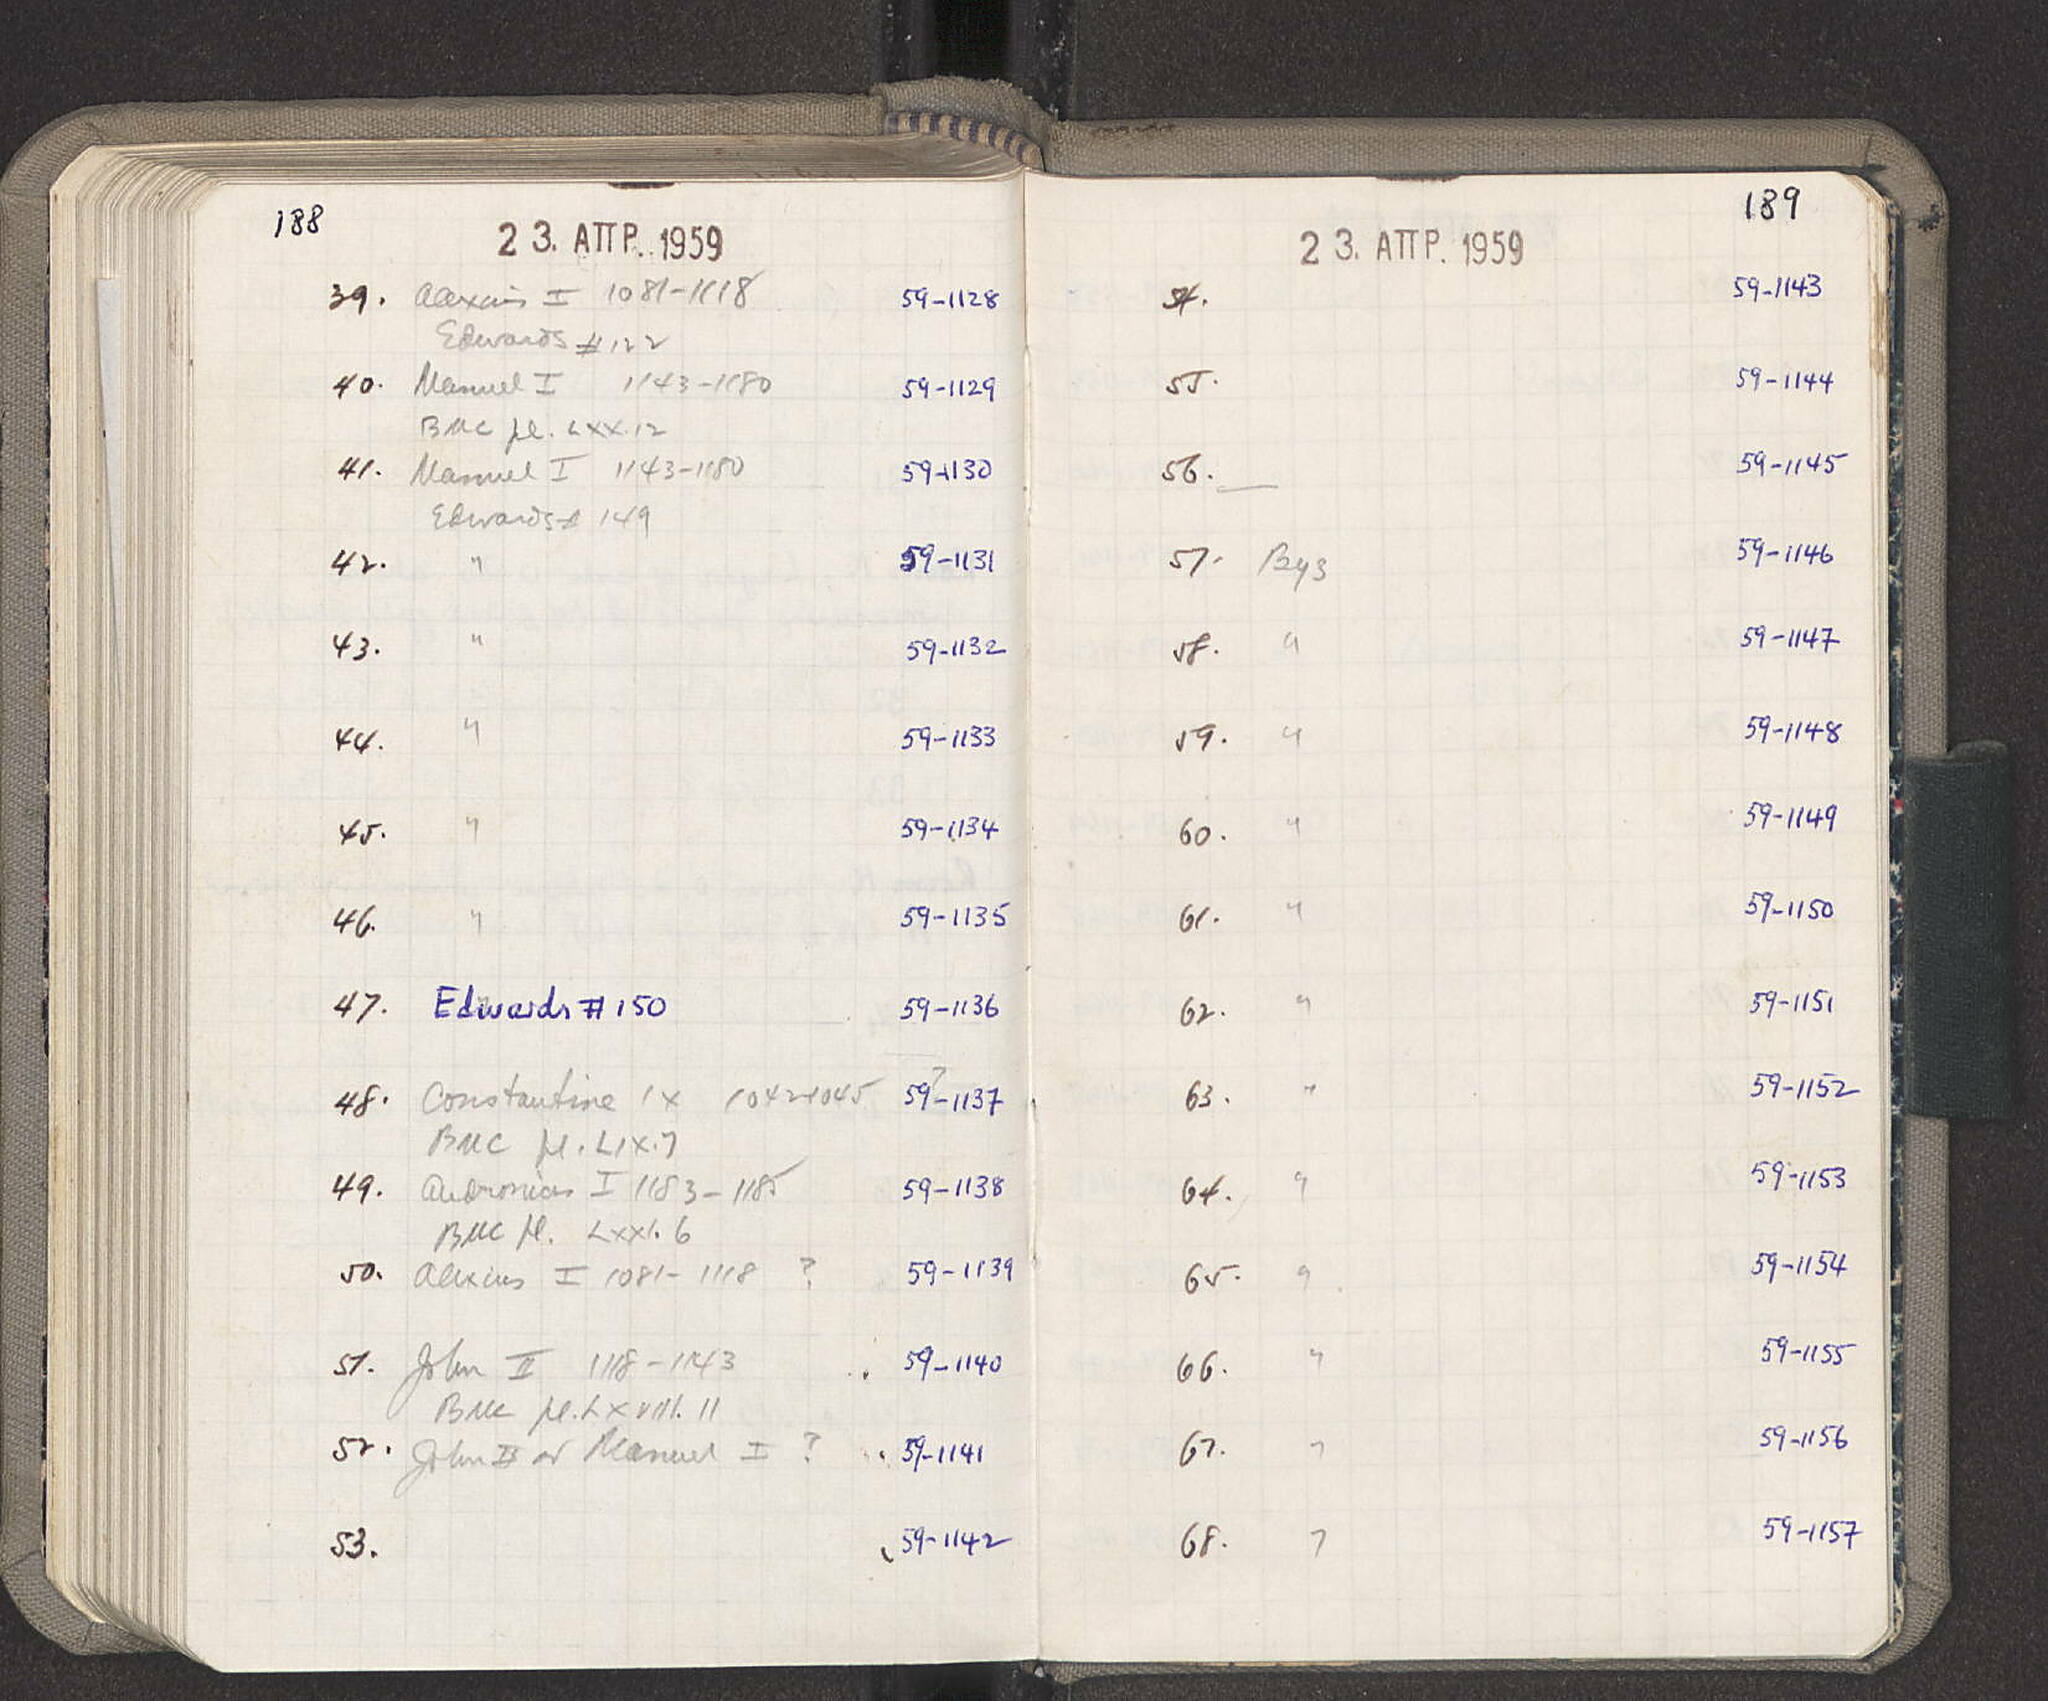 188
23. ΑΠΡ. 1959
39. Alexius I 1081-1118 59-1128
Edwards # 122
40. Manuel I 1143-1180 59-1129
BMC pl. LXX.12
41. Manuel I 1143-1180 59-1130
Edwards # 149
42. " 59-1131
43. " 59-1132
44. " 59-1133
45. " 59-1134
46. " 59-1135
47. Edwards # 150 59-1136
48. Constantine IX 1042-1045 ? 59-1137
BMC pl. LIX.7
49. Andronicus I 1183-1185 59-1138
BMC pl. LXXI.6
50. Alexius I 1081-1118 ? 59-1139
51. John II 1118-1143 59-1140
BMC pl. LXVIII.11
52. John II or Manuel I ? 59-1141
53. 59-1142
189
23. ΑΠΡ. 1959
54. 59-1143
55. 59-1144
56. 59-1145
57. Byz 59-1146
58. " 59-1147
59. " 59-1148
60. " 59-1149
61. " 59-1150
62. " 59-1151
63. " 59-1152
64. " 59-1153
65. " 59-1154
66. " 59-1155
67. " 59-1156
68. " 59-1157